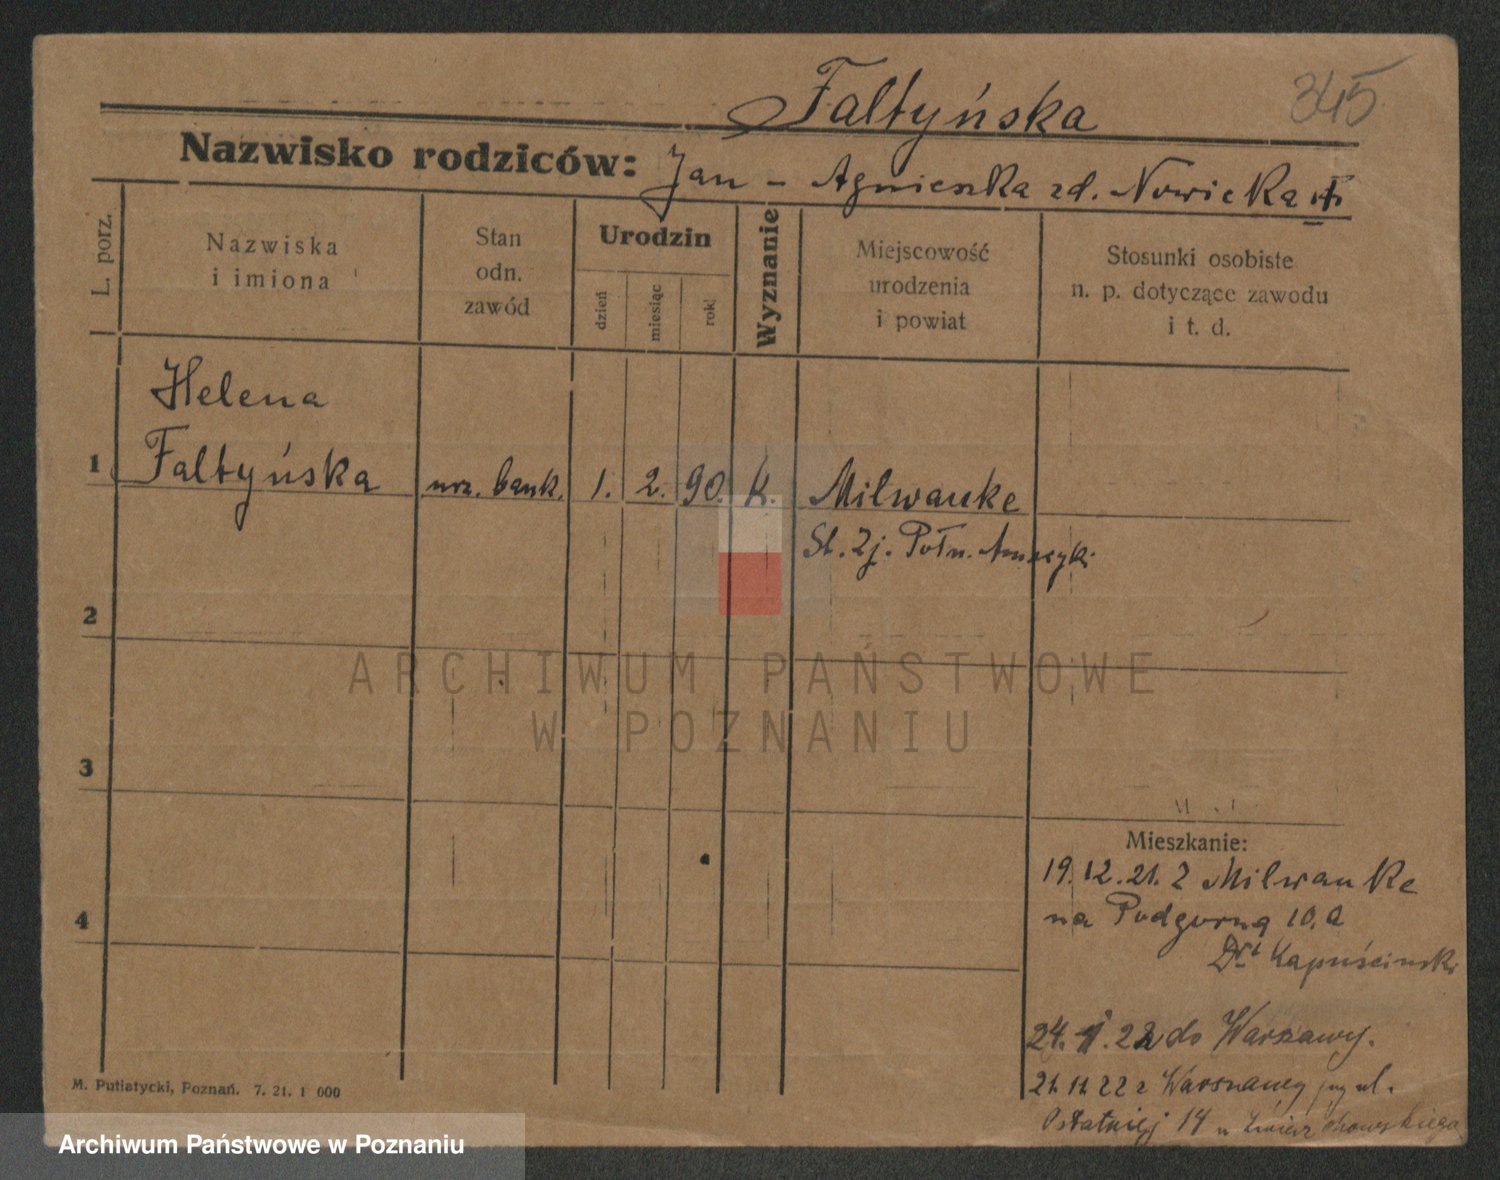 Faltyńska 345
Nazwisko rodziców: Jan – Agnieszka zd. Nowicka
L. porz.
Nazwiska
i imiona
Stan
odn.
zawód
Urodzin
dzień
miesiąc
rok
Wyznanie
Miejscowość
urodzenia
i powiat
Stosunki osobiste
n. p. dotyczące zawodu
i t. d.
Helena
1 Faltyńska urz. bank. 1. 2. 90. K. Milwauke
St. Zj. Półn. Ameryki
2
ARCHIWUM PAŃSTWOWE
W POZNANIU
3
4
Mieszkanie:
19.12.21. z Milwauke
na Podgórną 10.a
Kapuścinski
24. 1. 22 do Warszawy.
21.11.22 z Warszawy ul.
Ostatniej 14 u
M. Putiatycki, Poznań. 7. 21. 1 000
Archiwum Państwowe w Poznaniu